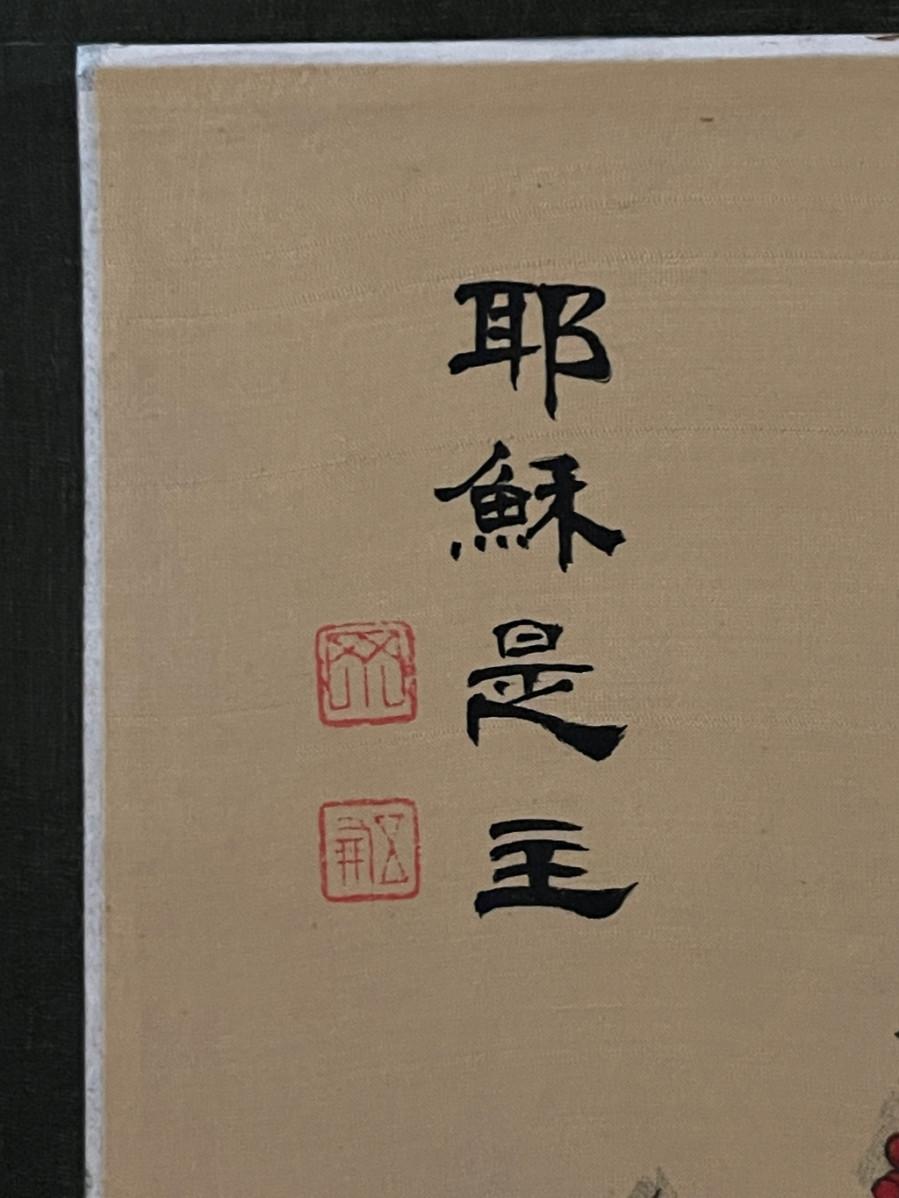 耶穌是主